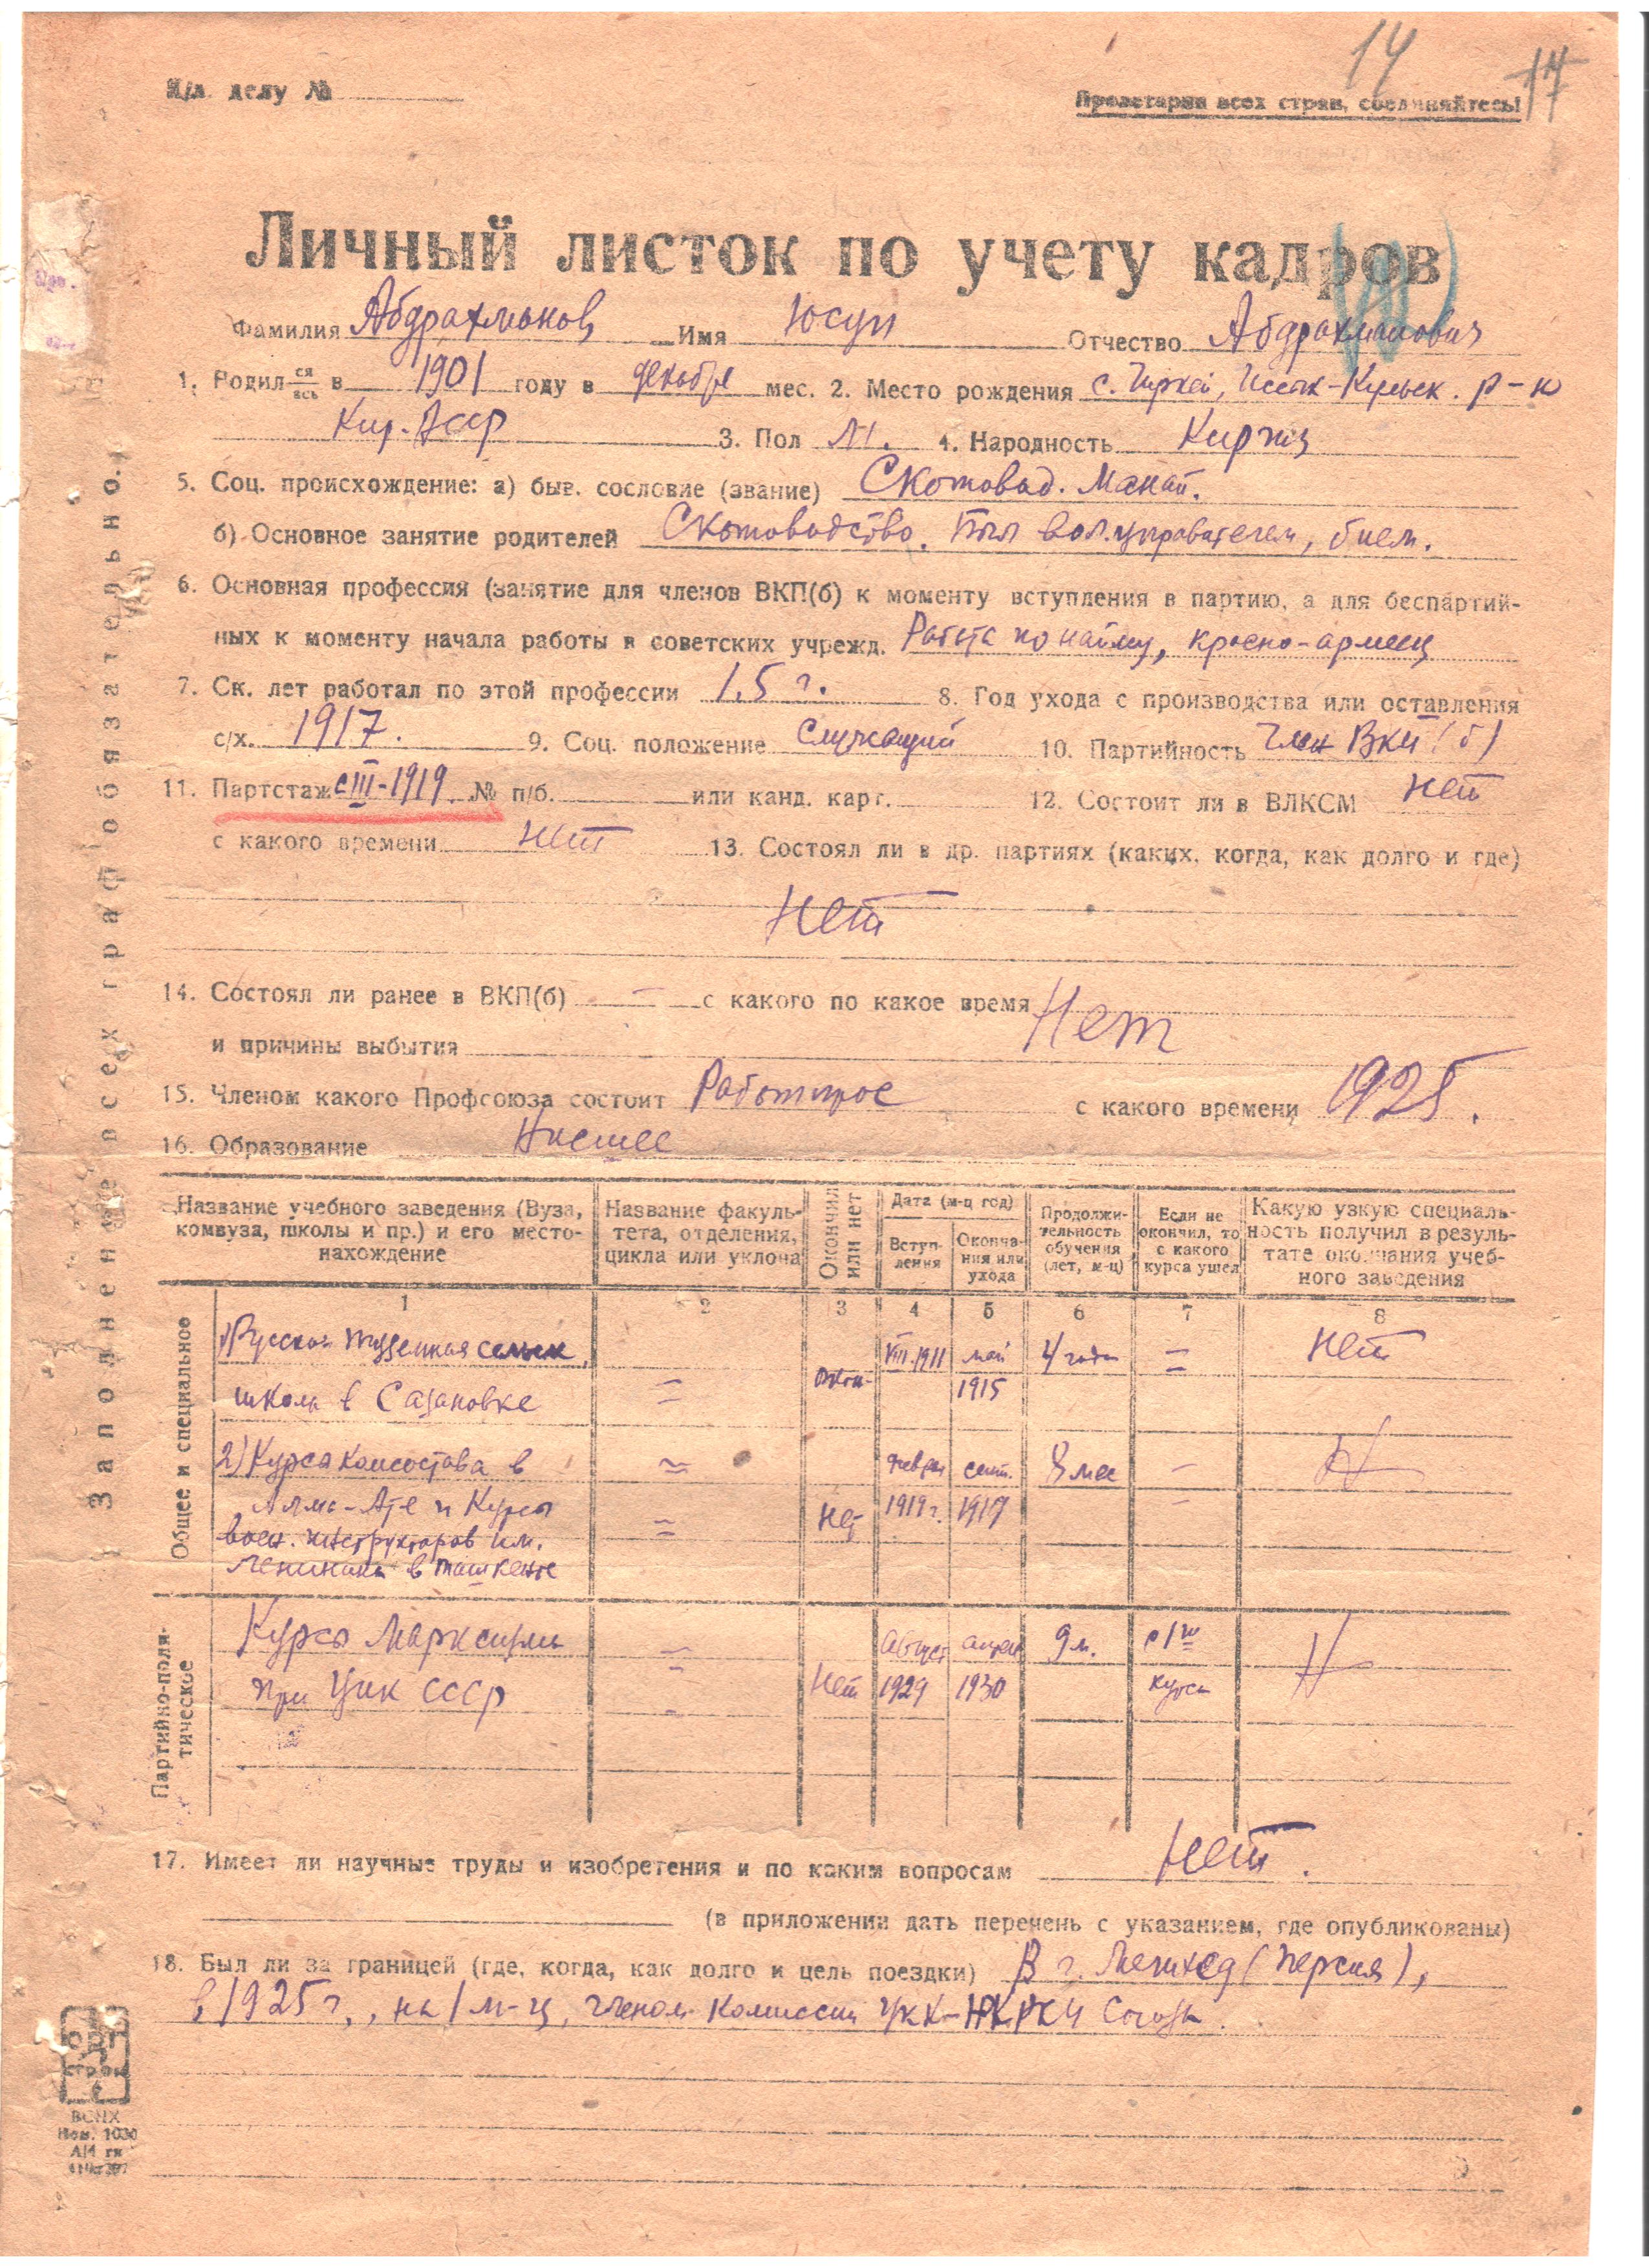 14
17
К/л. делу №
Пролетарии всех стран, соединяйтесь!
Личный листок по учету кадров
Фамилия Абдрахманов Имя Юсуп Отчество Абдрахманович
1. Родил ся/ась в 1901 году в декабре мес. 2. Место рождения с. Чиркей, Иссык-Кульск. р-н
Кир. АССР 3. Пол М. 4. Народность Киргиз
5. Соц. происхождение: а) быв. сословие (звание) Скотовод. Манап.
б) Основное занятие родителей Скотоводство. Был вол. управителем, бием.
6. Основная профессия (занятие для членов ВКП(б) к моменту вступления в партию, а для беспартий-
ных к моменту начала работы в советских учрежд. Работа по найму, красно-армеец
7. Ск. лет работал по этой профессии 1,5 г. 8. Год ухода с производства или оставления
с/х. 1917. 9. Соц. положение Служащий 10. Партийность Член ВКП(б)
11. Партстаж с III-1919 № п/б. или канд. карт. 12. Состоит ли в ВЛКСМ нет
с какого времени нет 13. Состоял ли в др. партиях (каких, когда, как долго и где)
Нет
14. Состоял ли ранее в ВКП(б) — с какого по какое время Нет
и причины выбытия
15. Членом какого Профсоюза состоит Работпрос с какого времени 1925.
16. Образование Низшее
Название учебного заведения (Вуза, комвуза, школы и пр.) и его место-нахождение
Название факуль-тета, отделения, цикла или уклона
Окончил или нет
Дата (м-ц год)
Вступ-ления
Оконча-ния или ухода
Продолжи-тельность обучения (лет, м-ц)
Если не окончил, то с какого курса ушел
Какую узкую специаль-ность получил в резуль-тате окончания учеб-ного заведения
1 2 3 4 5 6 7 8
Общее и специальное
1) Русско-Туземная сельск. VIII.1911 май 4 года = нет
школа в Сазановке = окон. 1915
2) Курсы комсостава в февраль сент. 8 мес —
Алма-Ате и Курсы Нет 1919 г.
воен. инструкторов им.
Ленина в Ташкенте
Партийно-поли-тическое
Курсы Марксизма август апрель 9 м. с 1го
при ЦИК СССР Нет 1929 1930 курса
17. Имеет ли научные труды и изобретения и по каким вопросам Нет.
(в приложении дать перечень с указанием, где опубликованы)
18. Был ли за границей (где, когда, как долго и цель поездки) В г. Мешхед (Персия),
в 1925 г., на 1 м-ц, членом Комиссии ЦКК-НКРКИ Союза.
Заполнение всех граф обязательно.
ВСНХ